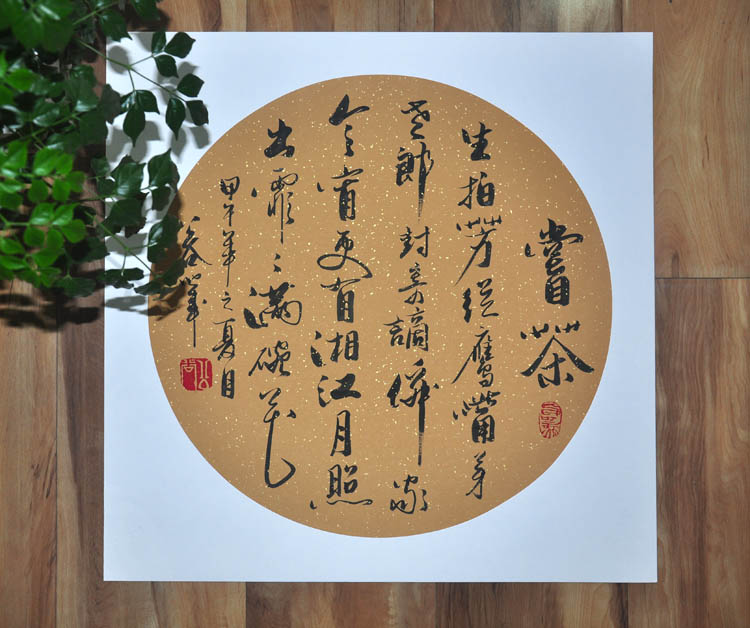 嘗茶
生拍芳從鷹觜芽
老郎封寄謫僊家
今宵更有湘江月照
出霏〻滿碗花
甲午年之夏月